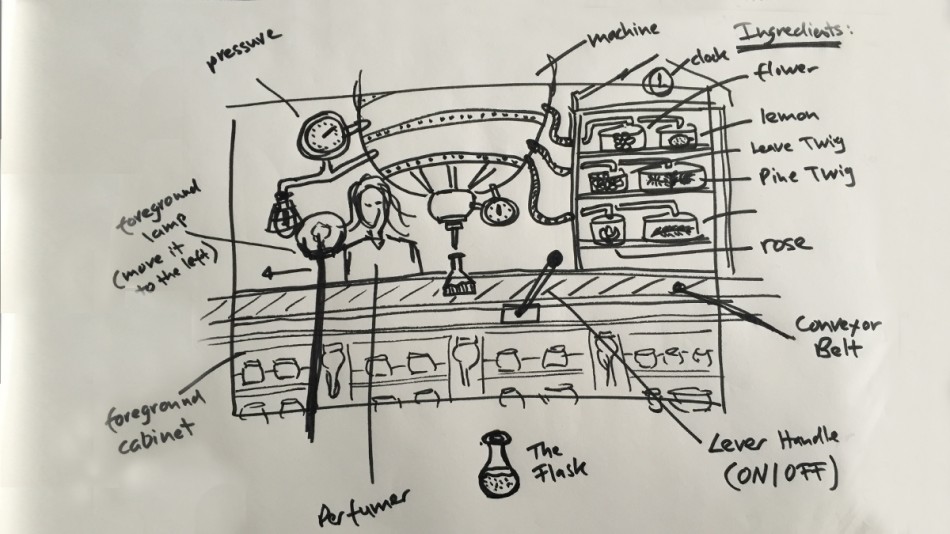 pressure
machine
Ingredients:
clock
flower
lemon
Leave Twig
Pine Twig
rose
foreground
lamp
(move it
to the left)
Conveyor
Belt
foreground
cabinet
Lever Handle
(ON/OFF)
The
Flask
Perfumer